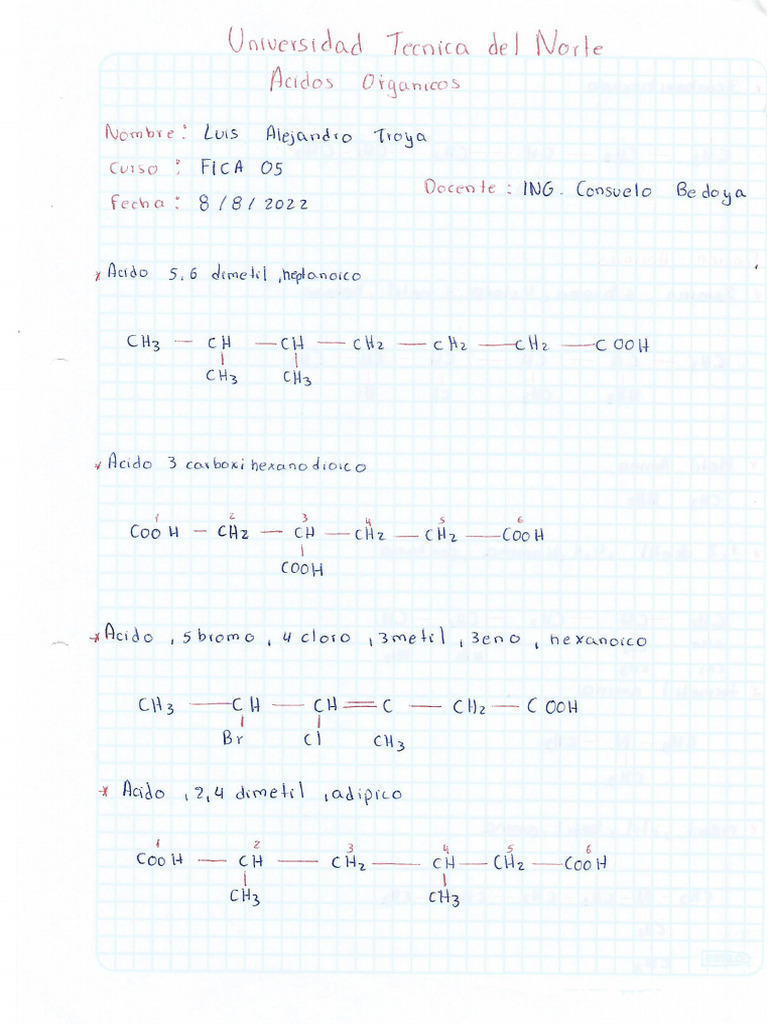 Universidad Tecnica del Norte
Acidos Organicos
Nombre: Luis Alejandro Troya
Curso: FICA 05
Docente: ING. Consuelo Bedoya
Fecha: 8/8/2022
* Acido 5,6 dimetil, heptanoico
CH3 — CH — CH — CH2 — CH2 — CH2 — COOH
CH3 CH3
* Acido 3 carboxihexanodioico
1 2 3 4 5 6
COOH — CH2 — CH — CH2 — CH2 — COOH
COOH
* Acido, 5bromo, 4 cloro, 3metil, 3eno, hexanoico
CH3 — CH — CH = C — CH2 — COOH
Br Cl CH3
* Acido, 2,4 dimetil, adipico
1 2 3 4 5 6
COOH — CH — CH2 — CH — CH2 — COOH
CH3 CH3